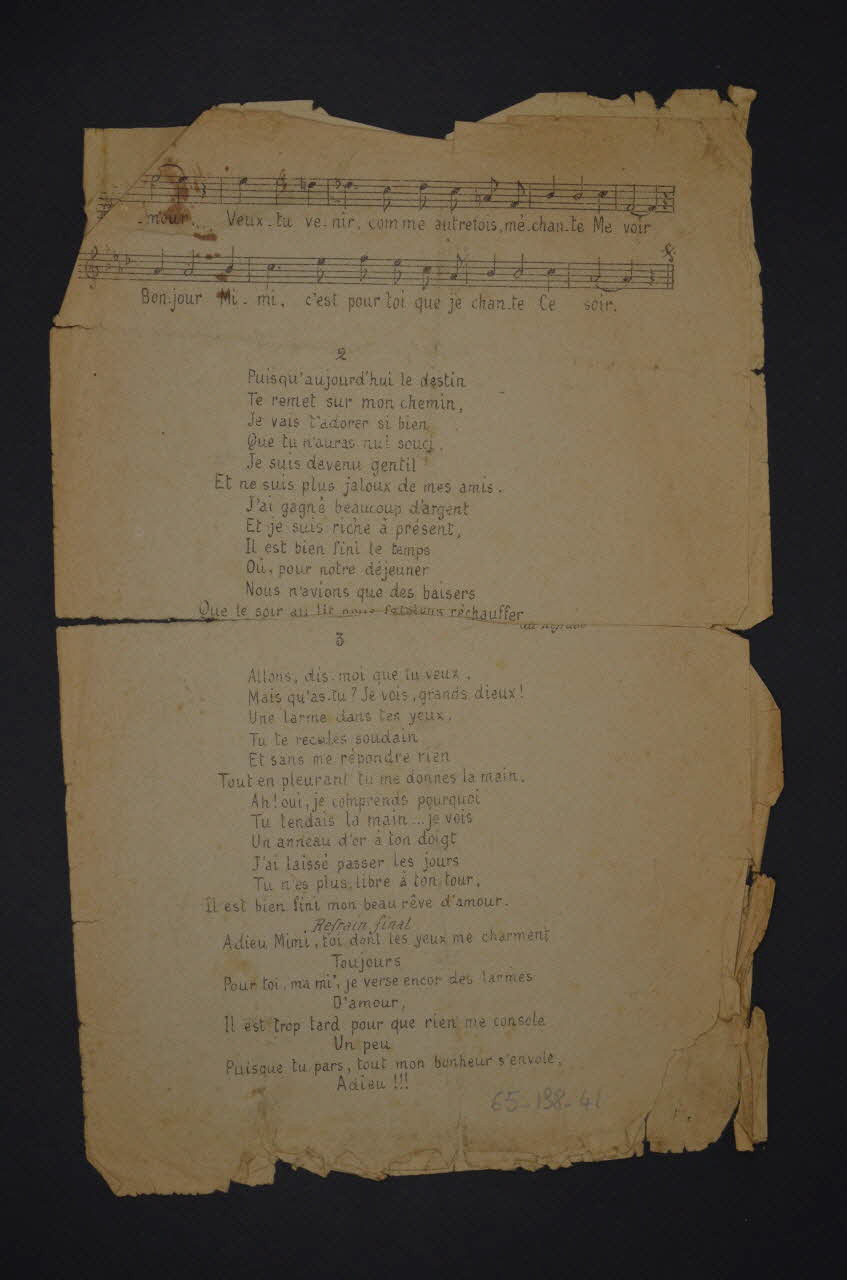 -mour.... Veux-tu ve-nir, com-me autrefois, mé-chan-te Me voir
Bon-jour Mi-mi, c'est pour toi que je chan-te Ce soir.
2
Puisqu'aujourd'hui le destin
Te remet sur mon chemin,
Je vais t'adorer si bien
Que tu n'auras nul souci.
Je suis devenu gentil
Et ne suis plus jaloux de mes amis.
J'ai gagné beaucoup d'argent
Et je suis riche à présent,
Il est bien fini le temps
Où, pour notre déjeuner
Nous n'avions que des baisers
Que le soir au lit nous faisions réchauffer
au refrain
3
Allons, dis-moi que tu veux.
Mais qu'as-tu? Je vois, grands dieux!
Une larme dans tes yeux,
Tu te recules soudain
Et sans me répondre rien
Tout en pleurant tu me donnes la main.
Ah! oui, je comprends pourquoi
Tu tendais la main... je vois
Un anneau d'or à ton doigt
J'ai laissé passer les jours
Tu n'es plus libre à ton tour,
Il est bien fini mon beau rêve d'amour.
Refrain final
Adieu Mimi, toi dont les yeux me charment
Toujours
Pour toi, ma mi', je verse encor des larmes
D'amour,
Il est trop tard pour que rien me console
Un peu
Puisque tu pars, tout mon bonheur s'envole,
Adieu !!!
65-198-41